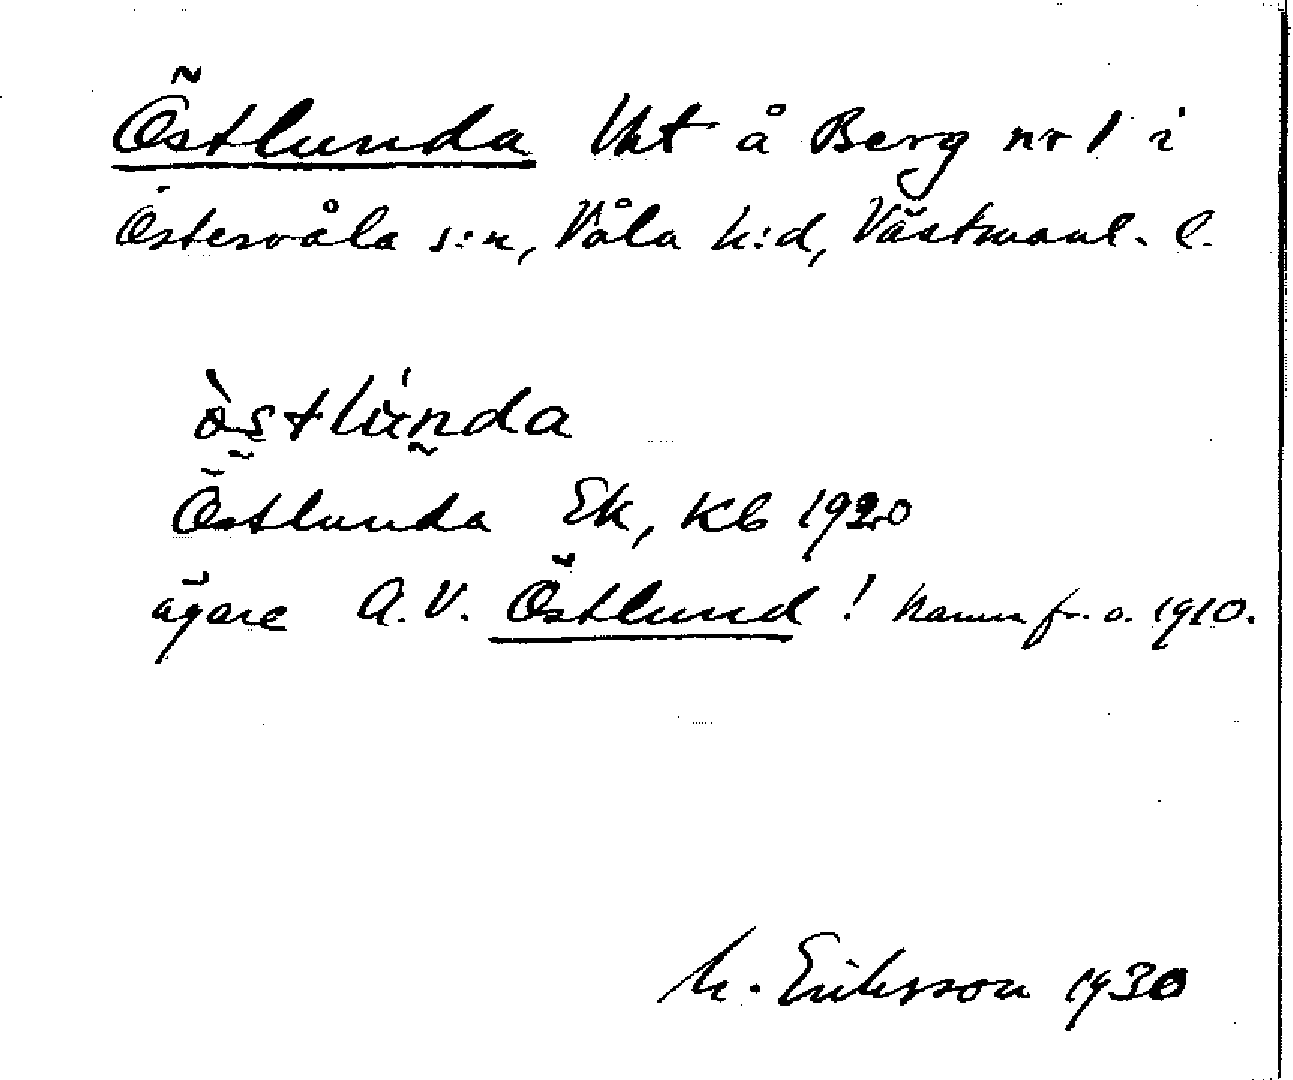 Östlunda Vht å Berg nr 1 i
Östervåla s:n, Våla h:d, Västmanl. l.
östlunda
Östlunda Ek, Kb 1920
ägare A.V. Östlund! Namn fr. o. 1910.
M. Eriksson 1930